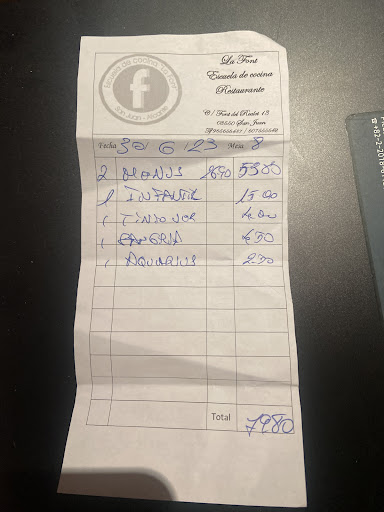 Escuela de cocina "La Font"
San Juan - Alicante
La Font
Escuela de cocina
Restaurante
C/ Font del Rosiet 13
03550 San Juan
Fecha 30 6 / 23 Mesa 8
2 MENUS 5380
1 INFANTIL 15 00
1 TINTO VER 4 00
1 SANGRIA 4 50
1 AQUARIUS 2 50
Total 7980